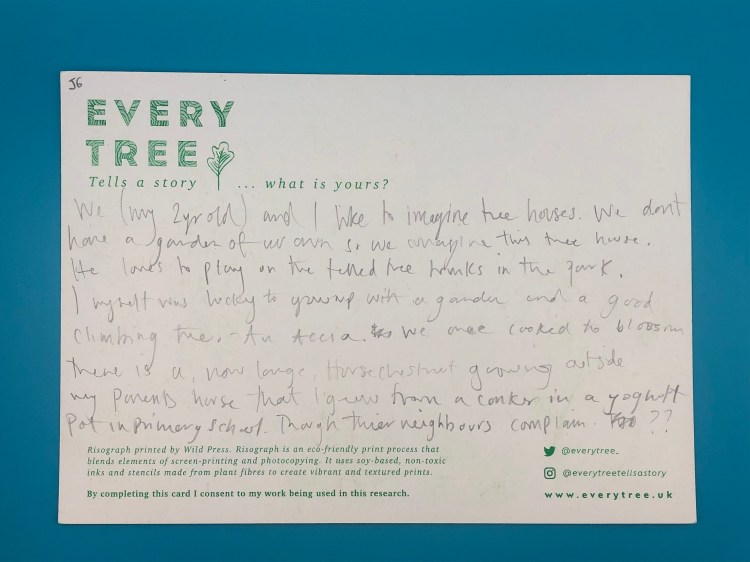 J6
EVERY
TREE
Tells a story ... what is yours?
We (my 2yr old) and I like to imagine tree houses. We don't
have a garden of our own so we imagine this tree house.
He loves to play on the felled tree trunks in the park.
I myself was lucky to grow up with a garden and a good
climbing tree. - An Accia. We once cooked to blossom
There is a, now large, Horsechestnut growing outside
my parents house that I grew from a conker in a yoghurt
pot in primary school. Though thier neighbours complain. ??
Risograph printed by Wild Press. Risograph is an eco-friendly print process that
blends elements of screen-printing and photocopying. It uses soy-based, non-toxic
inks and stencils made from plant fibres to create vibrant and textured prints.
By completing this card I consent to my work being used in this research.
@everytree_
@everytreetellsastory
www.everytree.uk